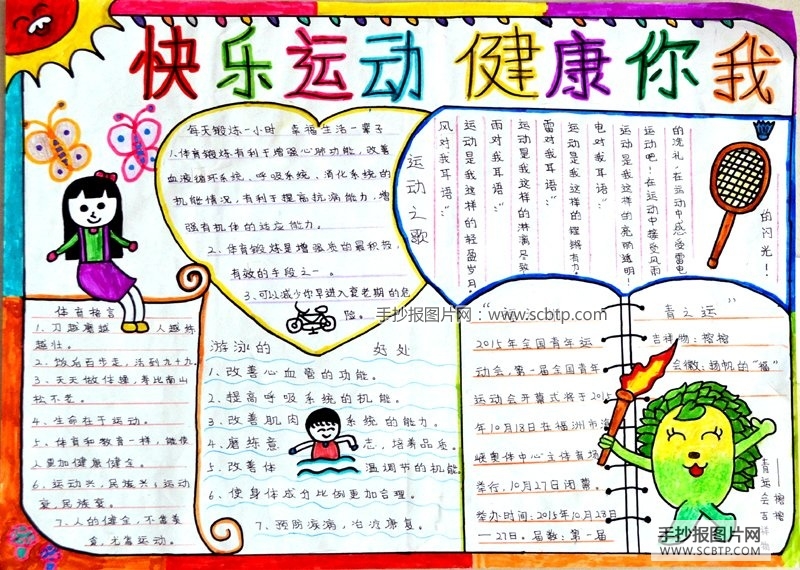 快乐运动 健康你我
每天锻炼一小时 幸福生活一辈子
1.体育锻炼有利于增强心肺功能,改善
血液循环系统、呼吸系统、消化系统的
机能情况,有利于提高抗病能力,增
强有机体的适应能力。
2、体育锻炼是增强质的最积极、
有效的手段之一。
3、可以减少你早进入衰老期的危
险。
运动之歌
风对我耳语:“
运动是我这样的轻盈岁月”
雨对我耳语:“
运动是我这样的淋漓尽致
雷对我耳语:“
运动是我这样的铿锵有力
电对我耳语:“
运动是我这样的亮丽透明!
运动吧!在运动中接受风雨
的洗礼,在运动中感受雷电
的闪光!
体育格言
1、刀越磨越 人越练
越壮。
2、饭后百步走,活到九十九
3、天天做体操,寿比南山
松不老。
4、生命在于运动。
5、体育和教育一样,能使
人更加健康健全。
6、运动兴,民族兴;运动
衰,民族衰。
7、人的健全,不靠
尤靠运动。
游泳的 好处
1、改善心血管的功能。
2、提高呼吸系统的机能。
3、改善肌肉 系统的能力。
4、磨练意 志,培养品质。
5、改善体 温调节的机能
6、使身体成分比例更加合理。
7、预防疾病,治疗康复。
“ 青之运”
2015年全国青年运 吉祥物:榕榕
动会,第一届全国青年 会徽:扬帆的“福”
运动会开幕式将于2015
年10月18日在福州市海
峡奥体中心主体育场
举行.10月27日闭幕。
举办时间:2015年10月18日
—27日。届数:第一届
青运会吉祥物
榕榕
手抄报图片网:www.scbtp.com
手抄报图片网
WWW.SCBTP.COM